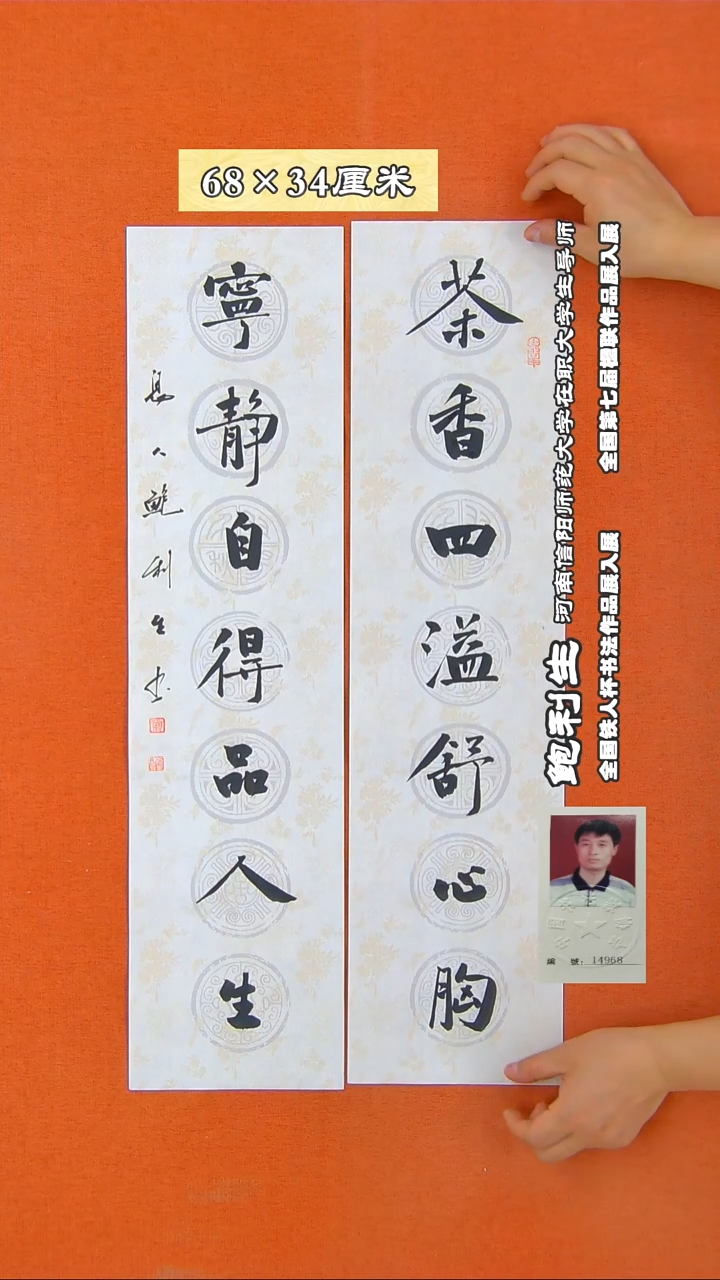 68×34厘米
茶香四溢舒心胸
寧静自得品人生
鲍利生书
鲍利生
河南信阳师范大学在职大学生导师
全国第七届楹联作品展入展
全国铁人杯书法作品展入展
編 號：14968